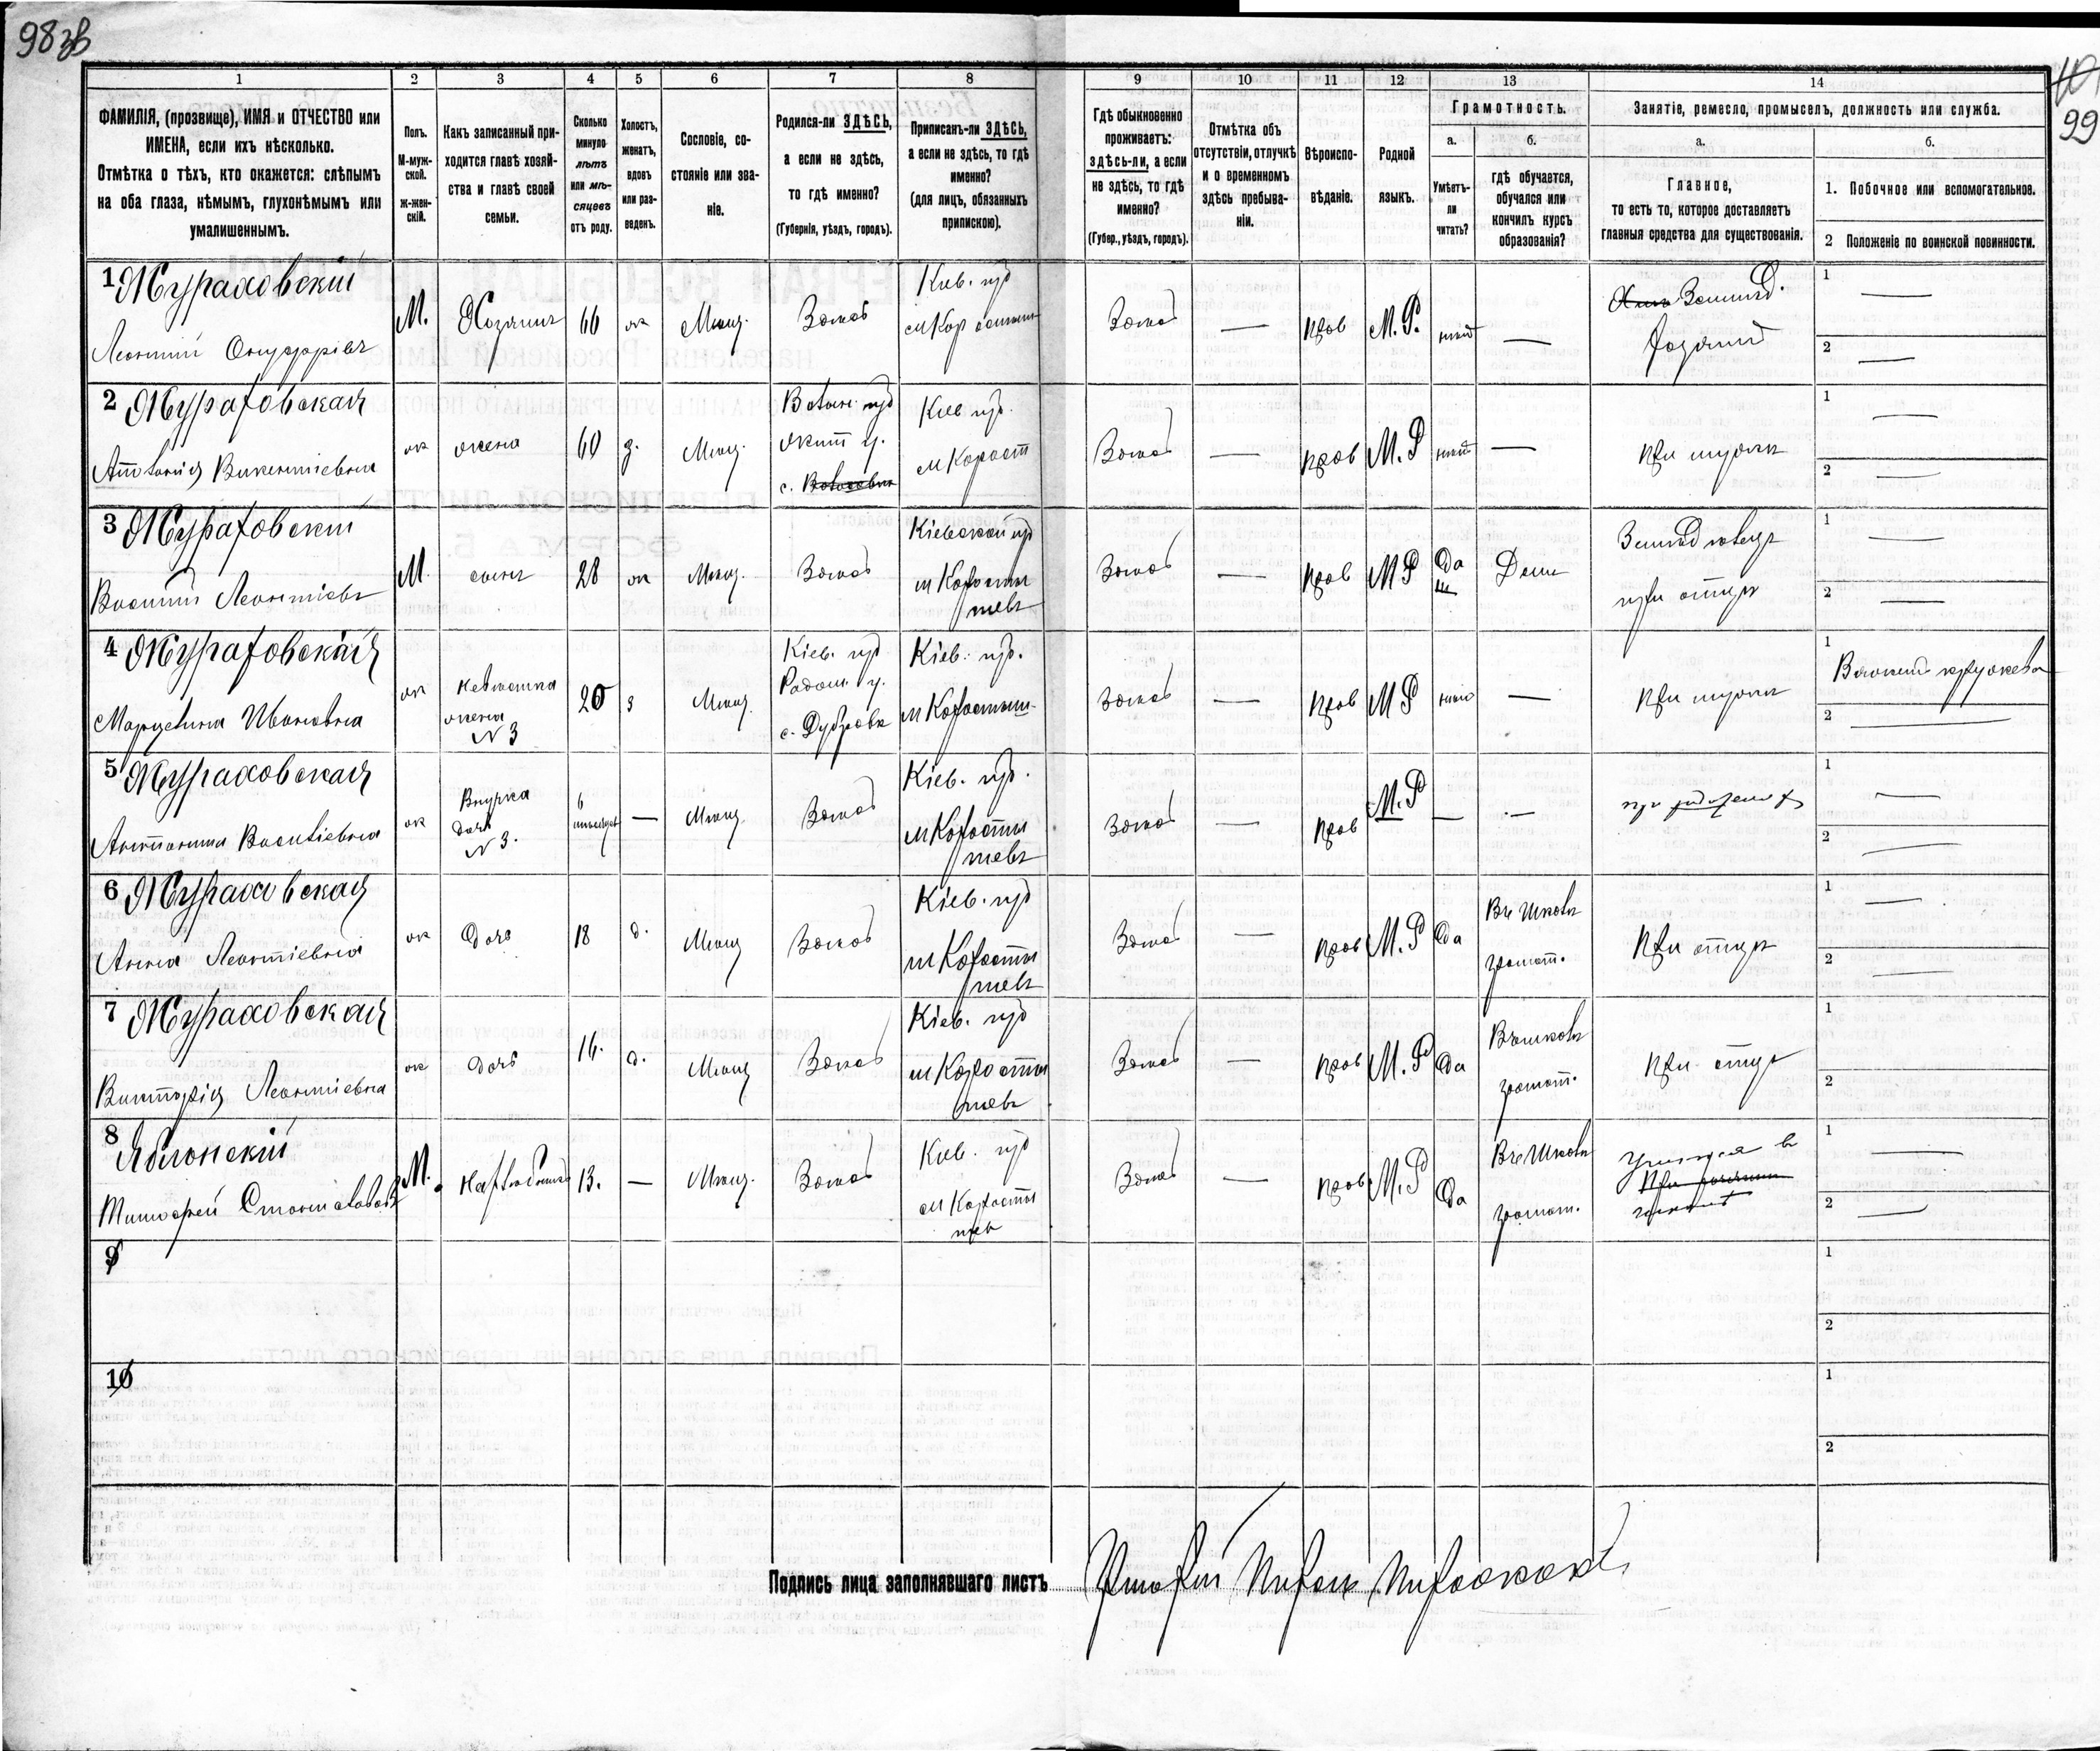 98 зв
99
1 2 3 4 5 6 7 8 9 10 11 12 13 14
ФАМИЛІЯ, (прозвище), ИМЯ и ОТЧЕСТВО или
ИМЕНА, если ихъ нѣсколько.
Отмѣтка о тѣхъ, кто окажется: слѣпымъ
на оба глаза, нѣмымъ, глухонѣмымъ или
умалишеннымъ.
Полъ.
М-муж-
ской.
ж-жен-
скій.
Какъ записанный при-
ходится главѣ хозяй-
ства и главѣ своей
семьи.
Сколько
минуло
лѣтъ
или мѣ-
сяцевъ
отъ роду.
Холостъ,
женатъ,
вдовъ
или раз-
веденъ.
Сословіе, со-
стояніе или зва-
ніе.
Родился-ли ЗДѢСЬ,
а если не здѣсь,
то гдѣ именно?
(Губернія, уѣздъ, городъ).
Приписанъ-ли ЗДѢСЬ,
а если не здѣсь, то гдѣ
именно?
(для лицъ, обязанныхъ
припискою).
Гдѣ обыкновенно
проживаетъ:
здѣсь-ли, а если
не здѣсь, то гдѣ
именно?
(Губер., уѣздъ, городъ).
Отмѣтка объ
отсутствіи, отлучкѣ
и о временномъ
здѣсь пребыва-
ніи.
Вѣроиспо-
вѣданіе.
Родной
языкъ.
Грамотность.
а.
Умѣетъ-
ли
читать?
б.
гдѣ обучается,
обучался или
кончилъ курсъ
образованія?
Занятіе, ремесло, промыселъ, должность или служба.
а.
Главное,
то есть то, которое доставляетъ
главныя средства для существованія.
б.
1. Побочное или вспомогательное.
2 Положеніе по воинской повинности.
1 Мураховскій
Леонтій Онуфріевъ
М. Хозяинъ 66 ж Мѣщ. Здѣсь
Кіев. губ
м Коростыш
Здѣсь — прав М. Р. нѣт —
Землед.
хозяинъ
1 —
2 —
2 Мураховская
Викентіевна
ж жена 60 з. Мѣщ.
Волын. губ
Жит у.
Кіев губ.
м Корост
Здѣсь — прав М. Р нѣт — при мужѣ
1 —
2 —
3 Мураховскій
Василій Леонтіевъ
М. сынъ 28 ж Мѣщ. Здѣсь
Кіевской губ
м Коросты
шевъ
Здѣсь — прав М Р Да Дома
при отцѣ
1 —
2 —
4 Мураховская
Марцелина Ивановна
ж невѣстка
жена
N 3
20 з Мѣщ.
Кіев. губ
Радом. у.
с. Дубровка
Кіев. губ.
м Коростыш-
Здѣсь — прав М Р нѣт — при мужѣ
1
2 —
5 Мураховская
Антонина Василіевна
ж Внучка
дочь
N 3.
6
мѣсяцев
— Мѣщ Здѣсь
Кіев. губ.
м Коросты
шевъ
Здѣсь — прав М. Р — —
при родителях
1 —
2 —
6 Мураховская
Анна Леонтіевна
ж Дочь 18 д. Мѣщ Здѣсь
Кіев. губ
м Коросты
шевъ
Здѣсь — прав М. Р Да
Въ Школѣ
грамот.
при отцѣ
1 —
2 —
7 Мураховская
Викторія Леонтіевна
ж дочь 16. д. Мѣщ Здѣсь
Кіев. губ
м Коросты
шевъ
Здѣсь — прав М. Р Да
Въ школѣ
грамот.
при отцѣ
1 —
2 —
8
Яблонскій
Тимофей
М. 13. — Мѣщ. Здѣсь
Кіев. губ
м Коросты
шев
Здѣсь — прав М. Р Да
Въ Школѣ
грамот.
1 —
2 —
9
1
2
10
1
2
Подпись лица заполнявшаго листъ